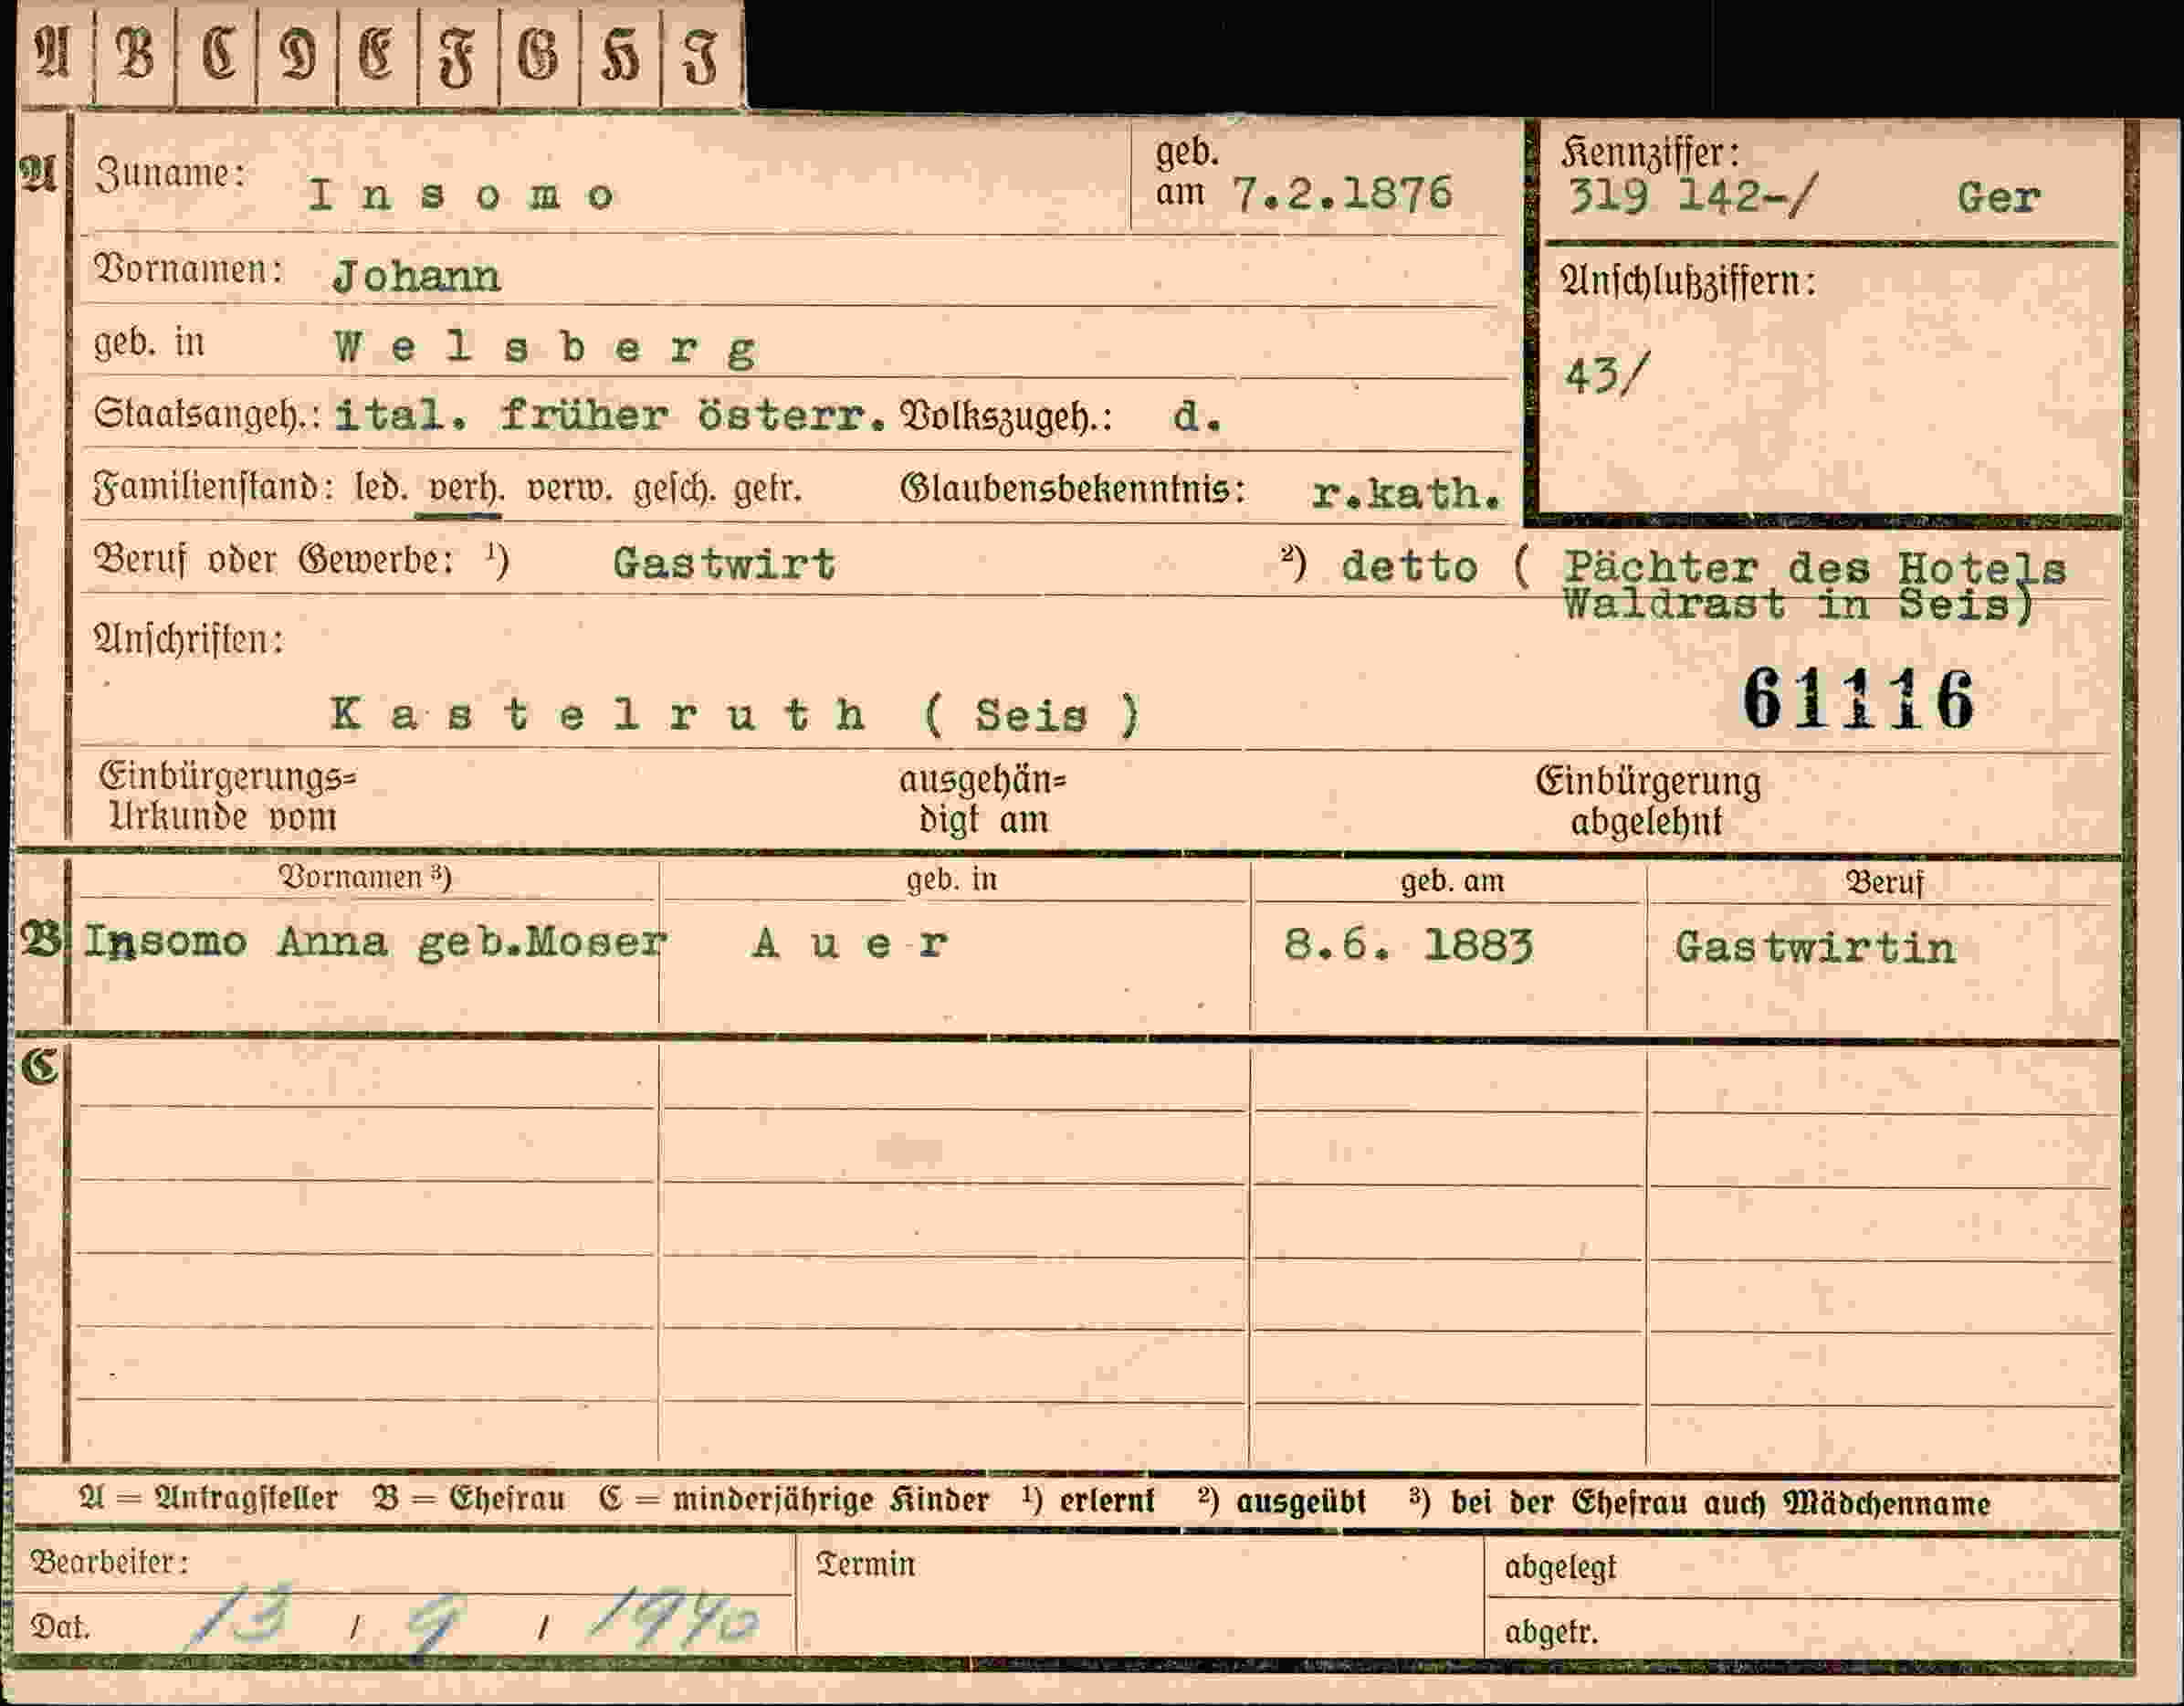 A B C D E F G H I
A Zuname: Insomo geb. am 7.2.1876
Kennziffer: 319 142-/ Ger
Vornamen: Johann
Anschlußziffern:
geb. in Welsberg
43/
Staatsangeh.: ital. früher österr. Volkszugeh.: d.
Familienstand: led. verh. verw. gesch. getr. Glaubensbekenntnis: r.kath.
Beruf oder Gewerbe: ¹) Gastwirt ²) detto ( Pächter des Hotels
Waldrast in Seis)
Anschriften:
61116
Kastelruth ( Seis )
Einbürgerungs= ausgehän= Einbürgerung
Urkunde vom digt am abgelehnt
Vornamen ³) geb. in geb. am Beruf
B Insomo Anna geb.Moser Auer 8.6. 1883 Gastwirtin
C
A = Antragsteller B = Ehefrau C = minderjährige Kinder ¹) erlernt ²) ausgeübt ³) bei der Ehefrau auch Mädchenname
Bearbeiter: Termin abgelegt
Dat. 13 / 9 / 1940 abgetr.